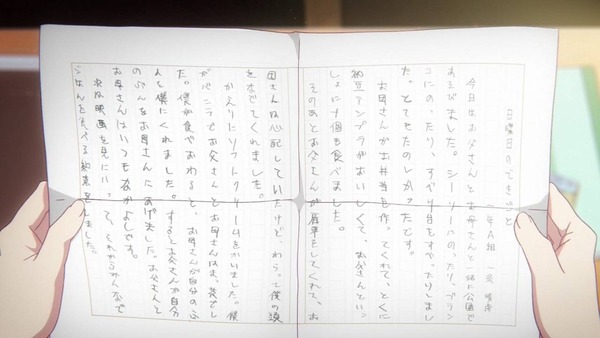 日曜日のできごと
一年A組 一条
今日はお父さんとお母さんと一緒に公園で
あそびました。シーソーにのったり、ブラン
コにのったり、すべり台をすべったりしまし
た。とてもたのしかったです。
お母さんがお弁当を作ってくれて、とくに
納豆アンプラがおいしくて、お父さんといっ
しょに十個も食べました。
そのあとお父さんが肩車をしてくれて、お
母さんは心配していたけど、わらって僕の
をなでてくれました。
かえりにソフトクリームをかいました。僕
がバニラでお父さんとお母さんは、
た。僕が食べおわると、お母さんが自分のぶ
んを僕にくれました。するとお父さんが自分
のぶんをお母さんにあげました。お父さんと
お母さんはいつもなかよしです。
次は映画を見にいって、みんなで
ごはんを食べる約束をしました。